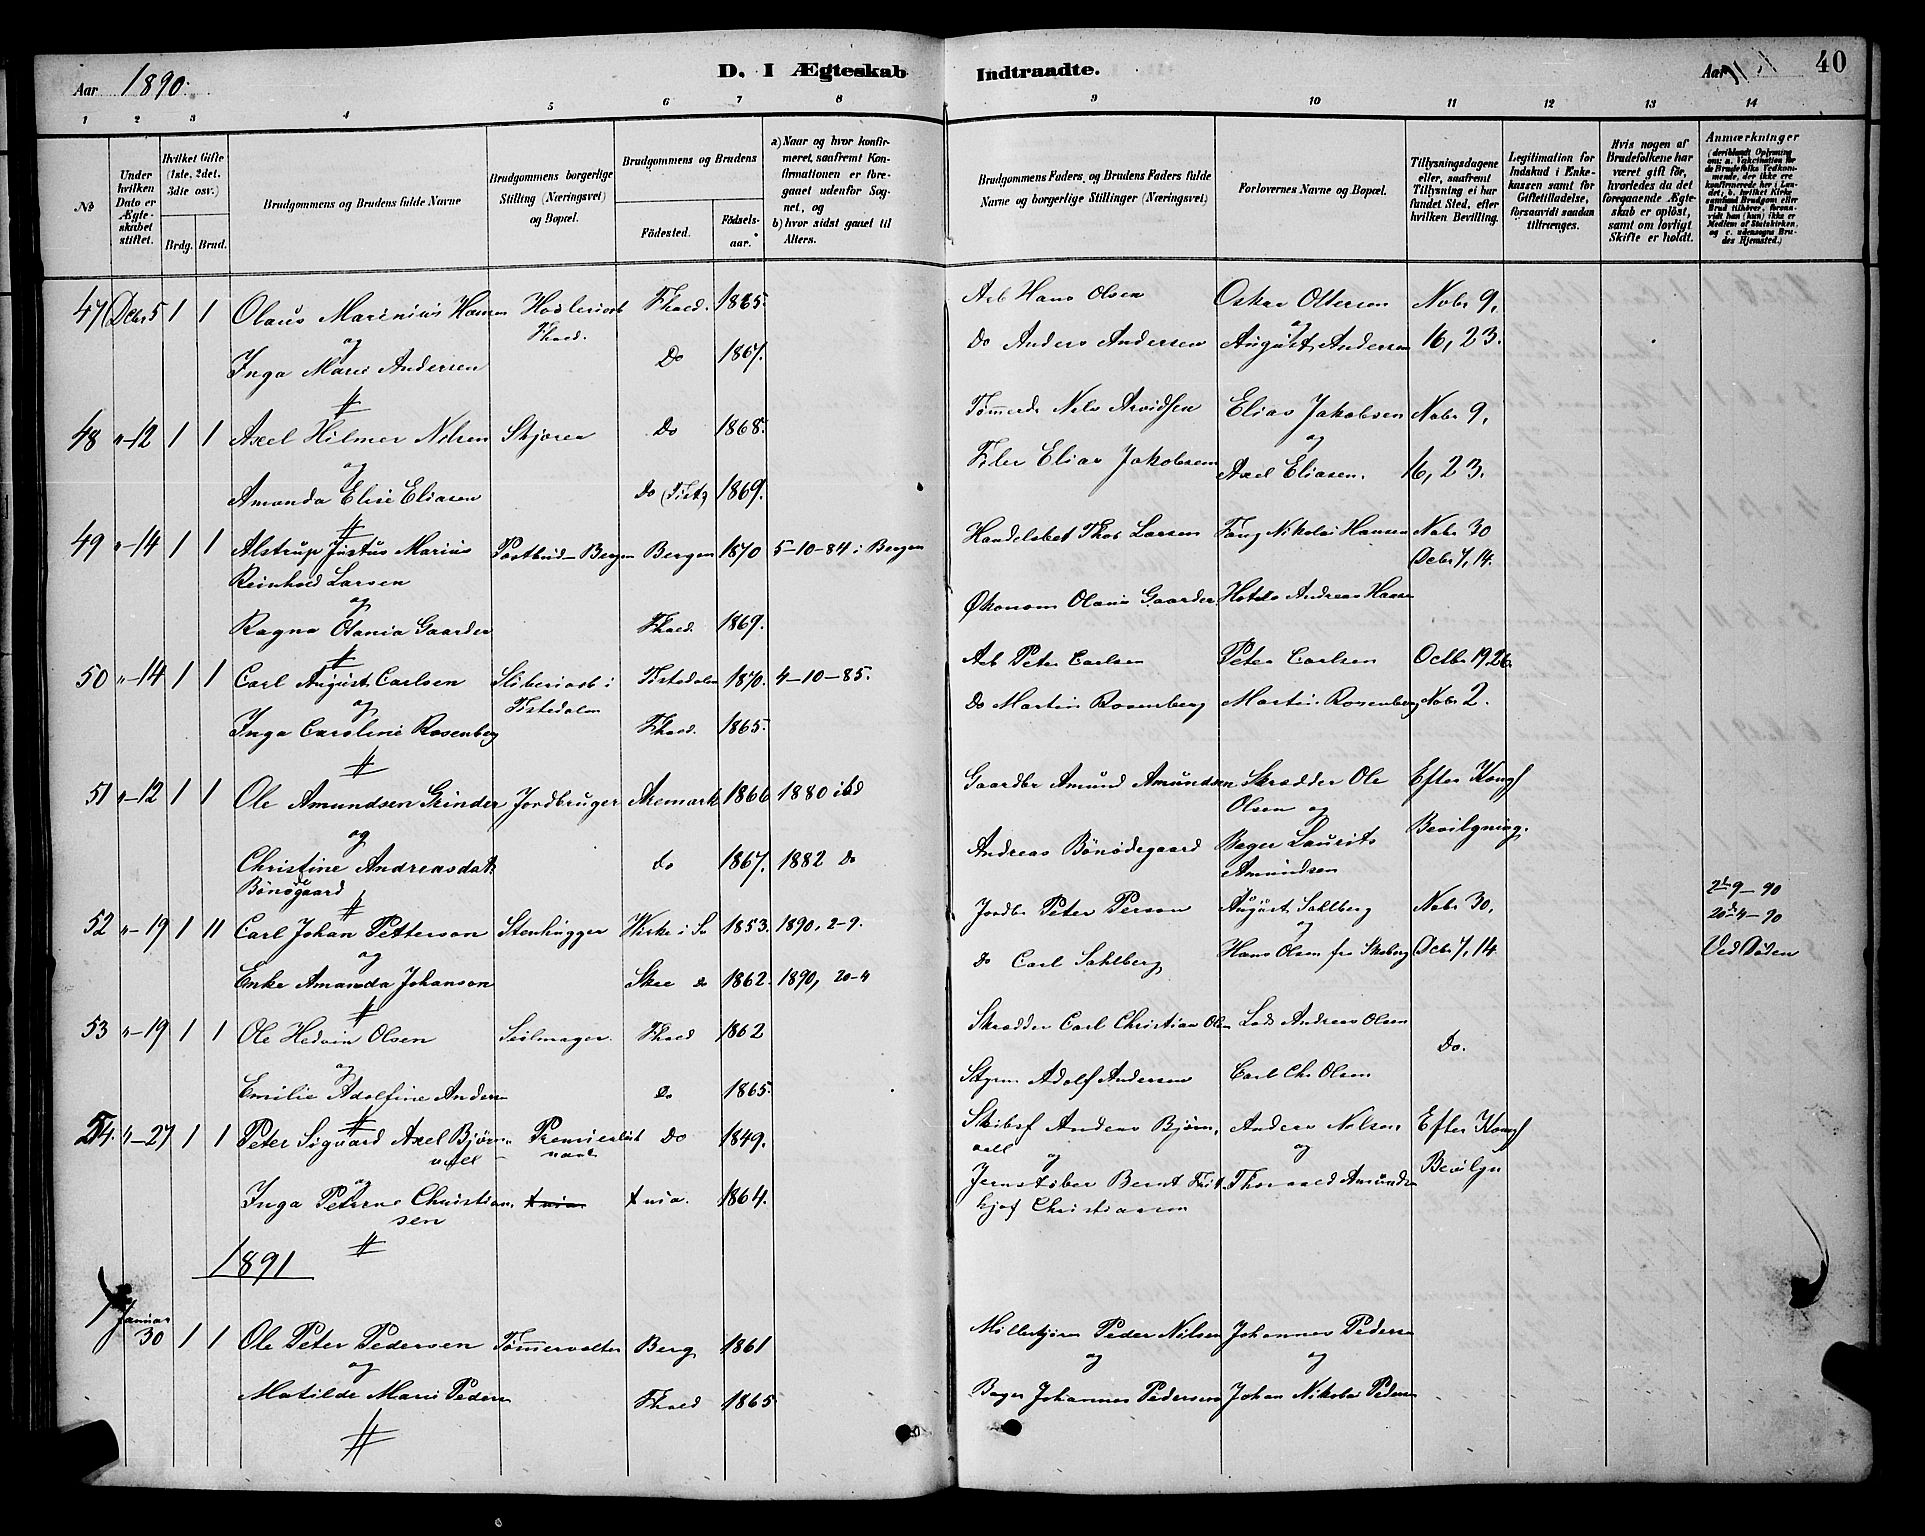 Aar 1890.
D. I Ægteskab
Indtraadte.
Aar
40
1 2 3 4 5 6 7 8 9 10 11 12 13 14
No
Under hvilken Dato er Ægteskabet stiftet.
Hvilket Gifte (1ste, 2det, 3die osv.)
Brdg. Brud.
Brudgommens og Brudens fulde Navne
Brudgommens borgerlige Stilling (Næringsvei) og Bopæl.
Brudgommens og Brudens
Födested.
Födselsaar.
a) Naar og hvor konfirmeret, saafremt Konfirmationen er foregaaet udenfor Sognet, og
b) hvor sidst gaaet til Alters.
Brudgommens Faders og Brudens Faders fulde Navne og borgerlige Stillinger (Næringsvei)
Forlovernes Navne og Bopæl.
Tillysningsdagene eller, saafremt Tillysning ei har fundet Sted, efter hvilken Bevilling.
Legitimation for Indskud i Enkekassen samt for Giftetilladelse, forsaavidt saadan tiltrænges.
Hvis nogen af Brudefolkene har været gift för, hvorledes da det foregaaende Ægteskab er oplöst, samt om lovligt Skifte er holdt.
Anmærkninger
(deriblandt Oplysning om: a. Vakcination for de Brudefolks Vedkommende, der ikke ere konfirmerede her i Landet; b. hvilket Kirkesamfund Brudgom eller Brud tilhörer, forsaavidt han (hun) ikke er Medlem af Statskirken, og c. udensogns Brudes Hjemsted.)
47 Dcbr 5 1 1 Olaus Marinius Hansen Fhald. 1865. Arb Hans Olsen Oskar Ottersen Nobr 9,
og Fhald. og
Inga Marie Andersen Do 1867. Do Anders Andersen August Andersen 16, 23.
48 "-12 1 1 Axel Hilmer Nilsen Skjorer Do 1868. Nels Arvidsen Elias Jakobsen Nobr 9,
og og
Amanda Elise Eliasen Do (Tist) 1869. Filer Elias Jakobsen Axel Eliasen. 16, 23.
49 "-14 1 1 Alstrup Justus Marius Postbud Bergen Bergen 1870 5-10-84 i Bergen Handelsbet Thos Larsen Nikolai Hansen Nobr 30
Reinhold Larsen Dcbr 7, 14.
og
Ragna Olania Gaarder Fhald. 1869. Økonom Olaus Gaarder Andreas
50 "-14 1 1 Carl August Carlsen Sliberiarb i Tistedalen 1870. 4-10-85. Arb Peter Carlsen Peter Carlsen Octbr 19, 26.
og Tistedalen
Inga Caroline Rosenberg Fhald. 1865. Do Martin Rosenberg Martin Rosenberg Nobr 2.
51 "-12 1 1 Ole Amundsen Grinder Jordbruger Aremark 1866 1880 ibd Gaardbr Amund Amundsen Skrædder Ole Efter Kongl
og Olsen og
Christine Andreasdat. do 1867. 1882 Do Andreas Bönödegaard Bager Laurits Bevilgning.
Bönögaard Amundsen
52 "-19 1 11 Carl Johan Petterson Stenhugger Wirke i Sv 1853. 1890, 2-9. Jordbr Peter Person August Sahlberg Nobr 30, 2/9-90
og og 20/4-90
Enke Amanda Johanson Skee do 1862. 1890, 20-4 do Carl Sahlberg Hans Olsen fra Skeberg Dcbr 7, 14. Ved Döden
53 "-19 1 1 Ole Hedvin Olsen Seilmager. Fhald 1862 Skrædder Carl Christian Olsen Lods Andreas Olsen
og Do.
Emilie Adolfine Andersen do 1865. Styrm Adolf Andersen Carl Chr Olsen
54. "-27 1 1 Peter Siguard Axel Björn- Premierløit Do 1849. Skibsf Anders Björn- Anders Nilsen Efter Kongl
vall vall og og
Inga Petrine Christian- Xnia. Xnia. 1864. Jernstöber Bernt Frit- Thorvald Amunds Bevilgn
sen hjof Christiansen
1891
1 Januar 30 1 1 Ole Peter Pedersen Tømmervalter Berg 1861 Peder Nilsen Johannes Peders
og og og
Matilde Marie Peders Fhald 1865 Bager Johannes Pedersen Johan Nikolai Peders